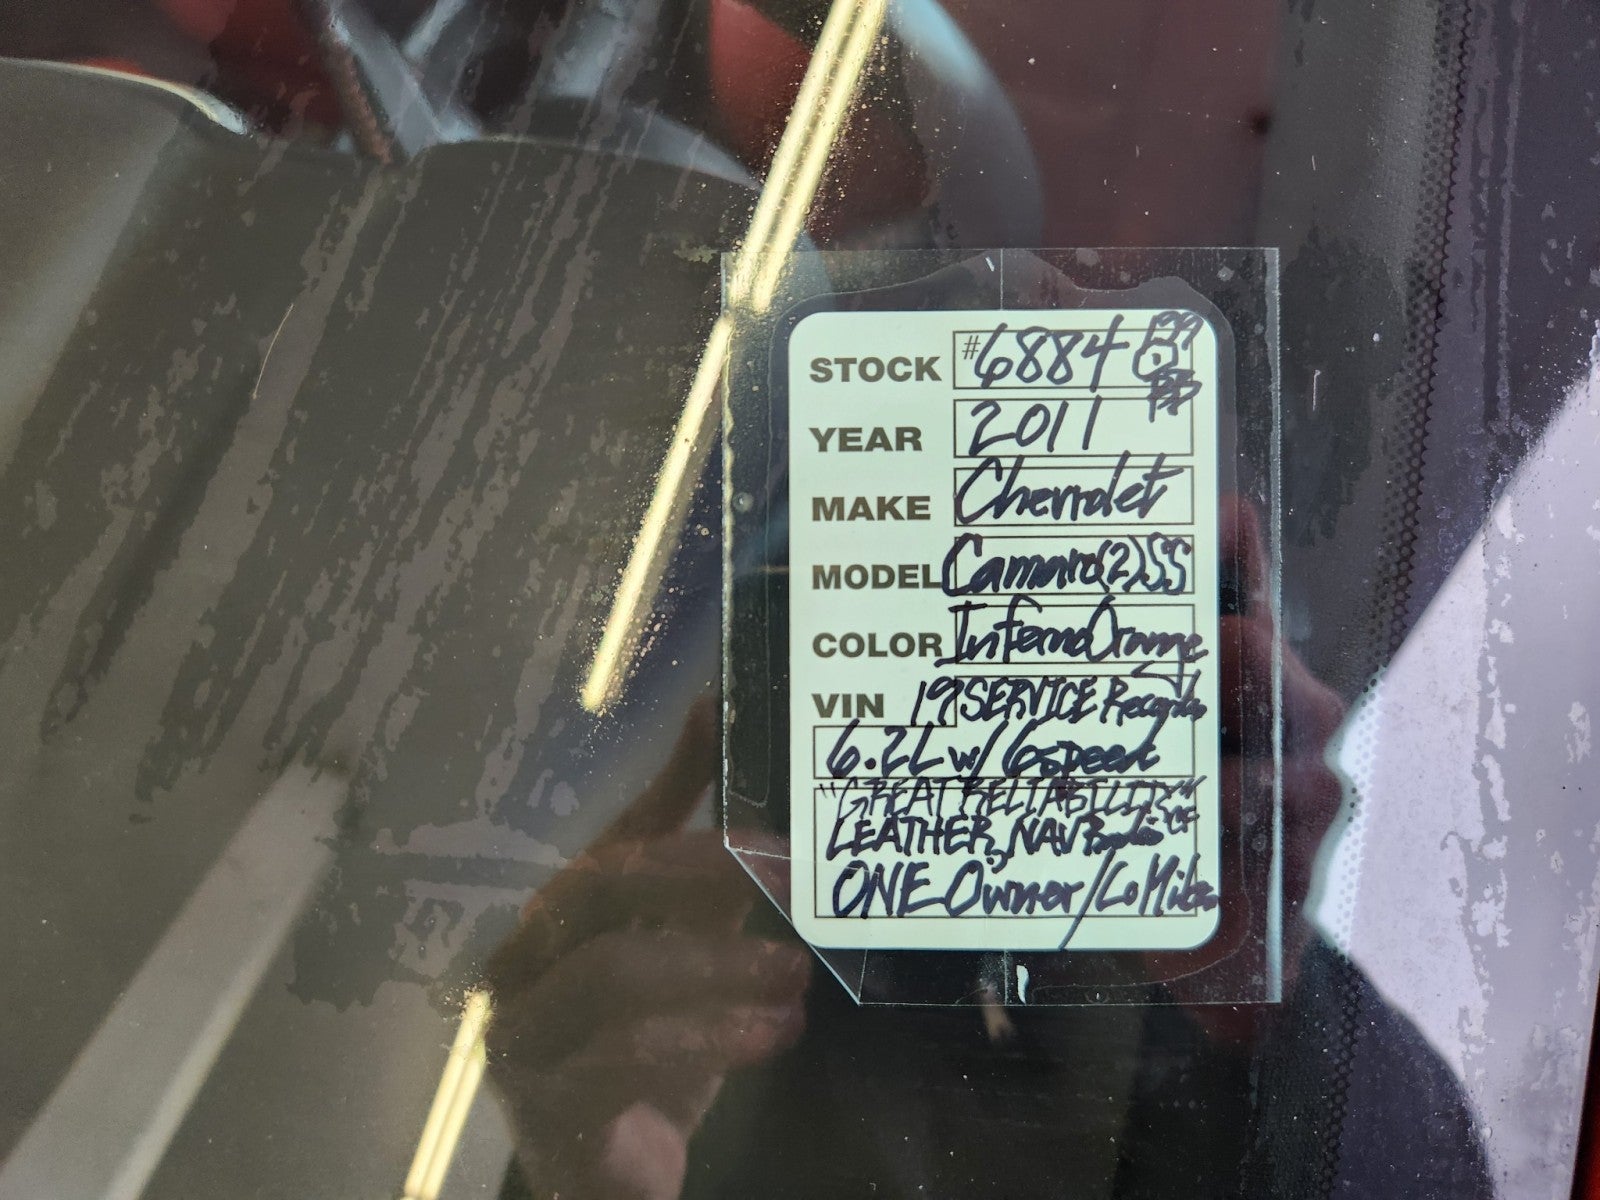 STOCK #6884
YEAR 2011
MAKE Chevrolet
MODEL Camaro(2)SS
COLOR Inferno Orange
VIN 19 SERVICE Records
6.2L w/ 6speed
"GREAT RELIABILITY"
LEATHER, NAV
ONE Owner/Lo Miles